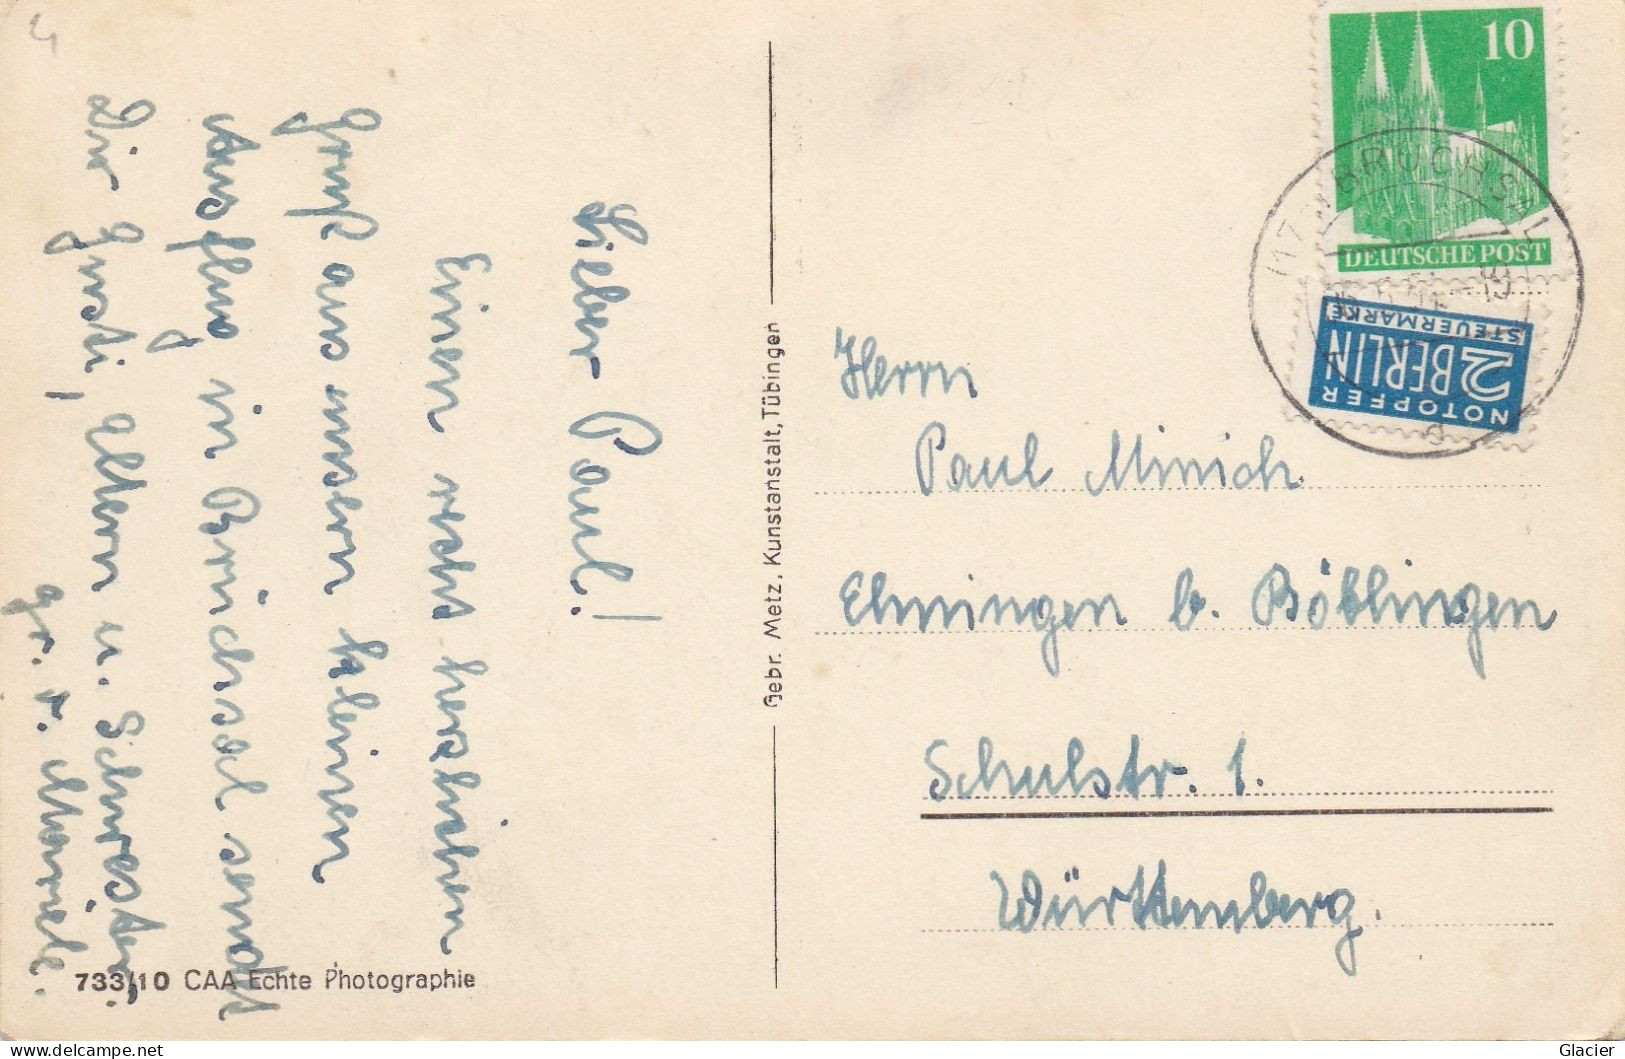 Lieber Paul!
Einen recht herzlichen
Gruß aus unsern kleinen
Ausflug in Bruchsal sendet
Dir Gusti, Eltern u. Schwester.
gr. v.
733/10 CAA Echte Photographie
Gebr. Metz, Kunstanstalt, Tübingen
10
DEUTSCHE POST
BRUCHSAL
NOTOPFER
2 BERLIN
STEUERMARKE
Herrn
Paul Minich
Ehningen b. Böblingen
Schulstr. 1.
Württemberg.
Glacier
www.delcampe.net